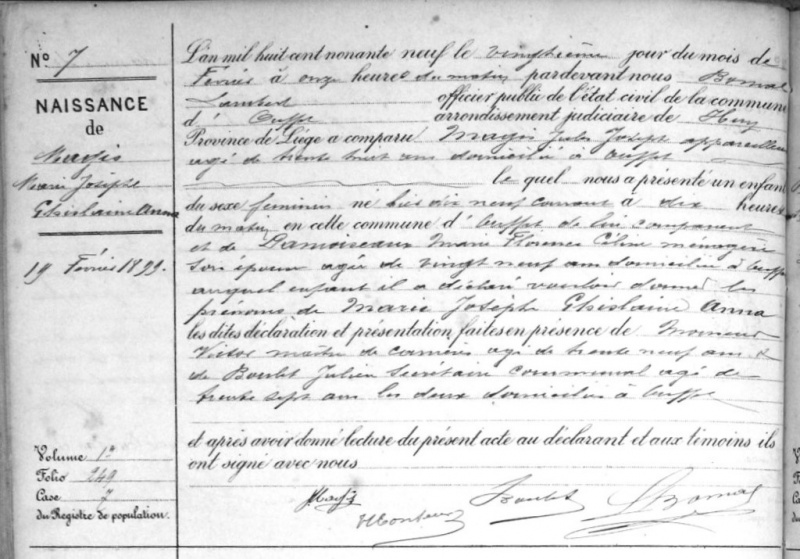 No 7
NAISSANCE
de
Magis
Marie Josèphe
Ghislaine Anna
19 Février 1899.
Volume 1r
Folio 249
Case 7
du Registre de population.
L'an mil huit cent nonante neuf le vingtième jour du mois de
Février à onze heures du matin pardevant nous Bomal
Lambert officier public de l'état civil de la commune
d' Ouffet arrondissement judiciaire de Huy
Province de Liège a comparu Magis Jules Joseph appareilleur
agé de trente huit ans domicilié à Ouffet
le quel nous a présenté un enfant
du sexe féminin né hier dix neuf courant à dix heures
du matin en cette commune d' Ouffet de lui comparant
et de Damoiseaux Marie Florence Céline ménagère
son épouse agée de vingt neuf ans domiciliée à Ouffet
auquel enfant il a déclaré vouloir donner les
prénoms de Marie Josèphe Ghislaine Anna
les dites déclaration et présentation faites en présence de
Victor maître de carrières agé de trente neuf ans &
de Boulet Julien secrétaire communal agé de
trente sept ans les deux domiciliés à Ouffet
et après avoir donné lecture du présent acte au déclarant et aux témoins ils
ont signé avec nous
JMagis
Boulet
LBomal